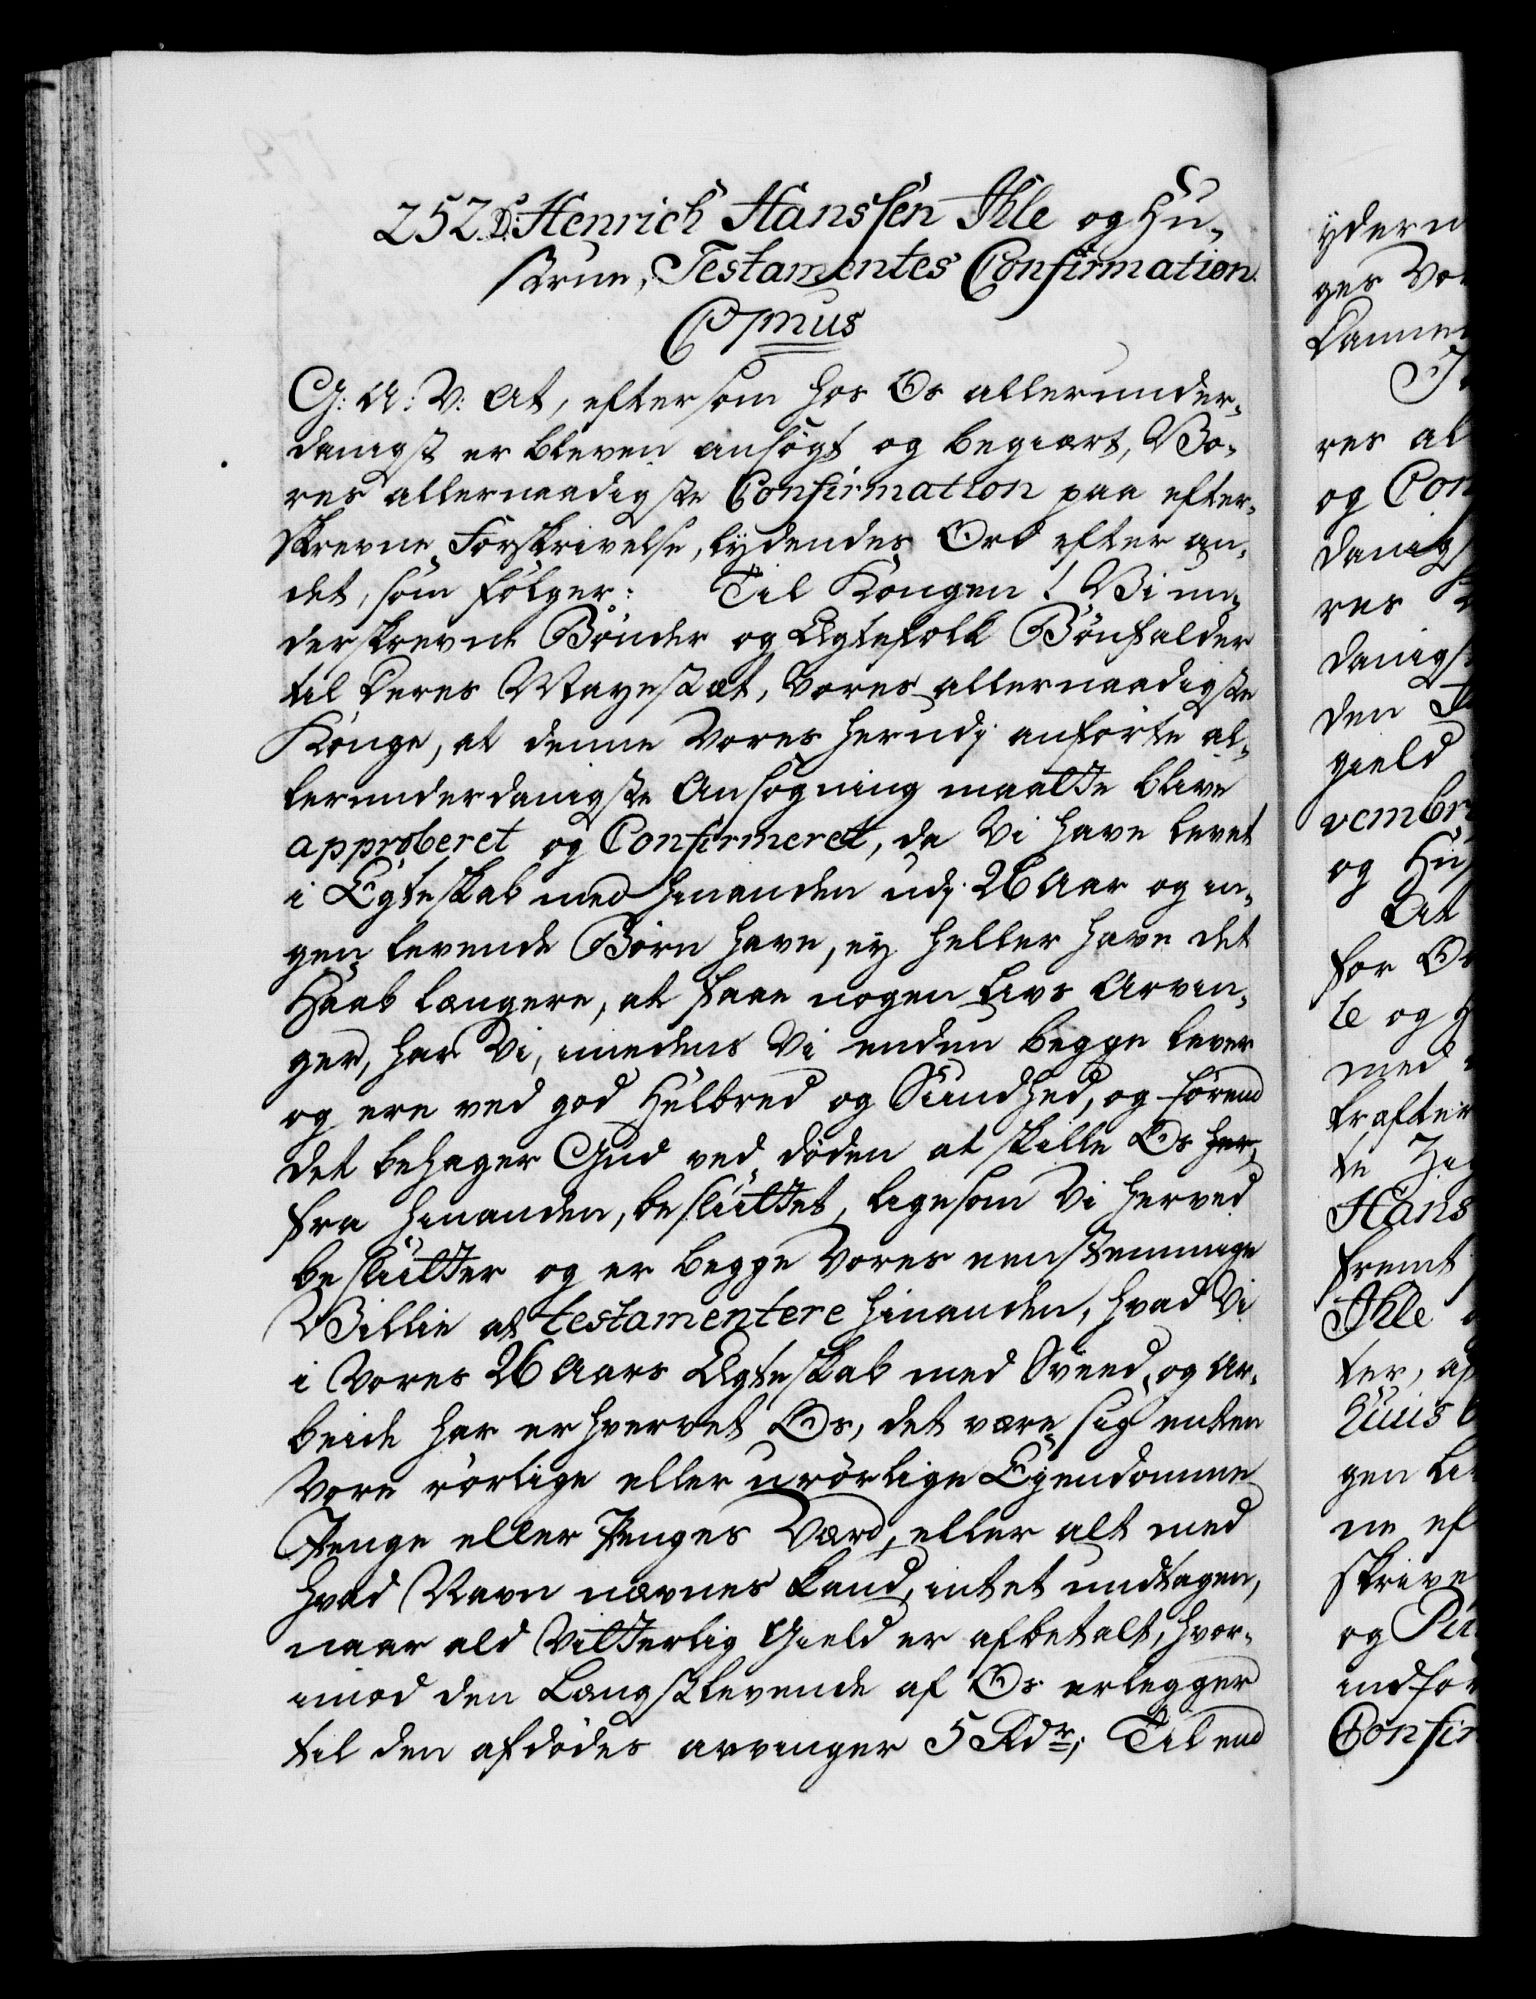 252. D: Henrich Hanssen Ihle og Hu-
strue, Testamentes Confirmation.
Cpmus
G: A: V: At, eftersom hos Os allerunder-
danigst er bleven ansøgt og begiært, Vo-
res allernaadigste Confirmation paa efter-
skrevne Forskrivelse, lydendes Ord efter an-
det, som følger: Til Kongen! Vi un-
derskrevne Bønder og Ægtefolk Bønfalder
til Deres Mayestæt, vores allernaadigste
Konge, at denne vores herudj anførte al-
lerunderdanigste Ansøgning maatte blive
approberet og Confirmeret, da vi have levet
i Egteskab med hinanden udj 26 Aar og in-
gen levende Børn have, ey heller have det
Haab længere, at faae nogen Livs Arvin-
ger, har Vi, imedens Vi enden begge lever
og ere ved god Helbred og Sundhed, og førend
det behager Gud ved døden at skille Os her
fra hinanden, besluttet, ligesom Vi herved
beslutter og er begge vores eenstemmige
Villie at testamentere hinanden, hvad Vi
i vores 26 Aars Ægteskab med Sveed og Ar-
beide har erhvervet Os, det være sig enten
vore rørlige eller urørlige Ejendomme
Penge eller Penges Værd, eller alt med
hvad Navn nævnes kand, intet undtagen,
naar ald vitterlig Gield er afbetalt, hvor-
imod den Længstlevende af Os erlegger
til den afdødes arvinger 5 Rdr; Til end
ydern
ges Vo
Danne
res al
og Con
danigs
res
danigs
den
gield
vembr
og Hus
At
for Os
le og H
med
krafter
te
Hans
fremt
Ihle
ter, af
Huus
gen li
ne ef
skrive
og Pu
indfør
Confir